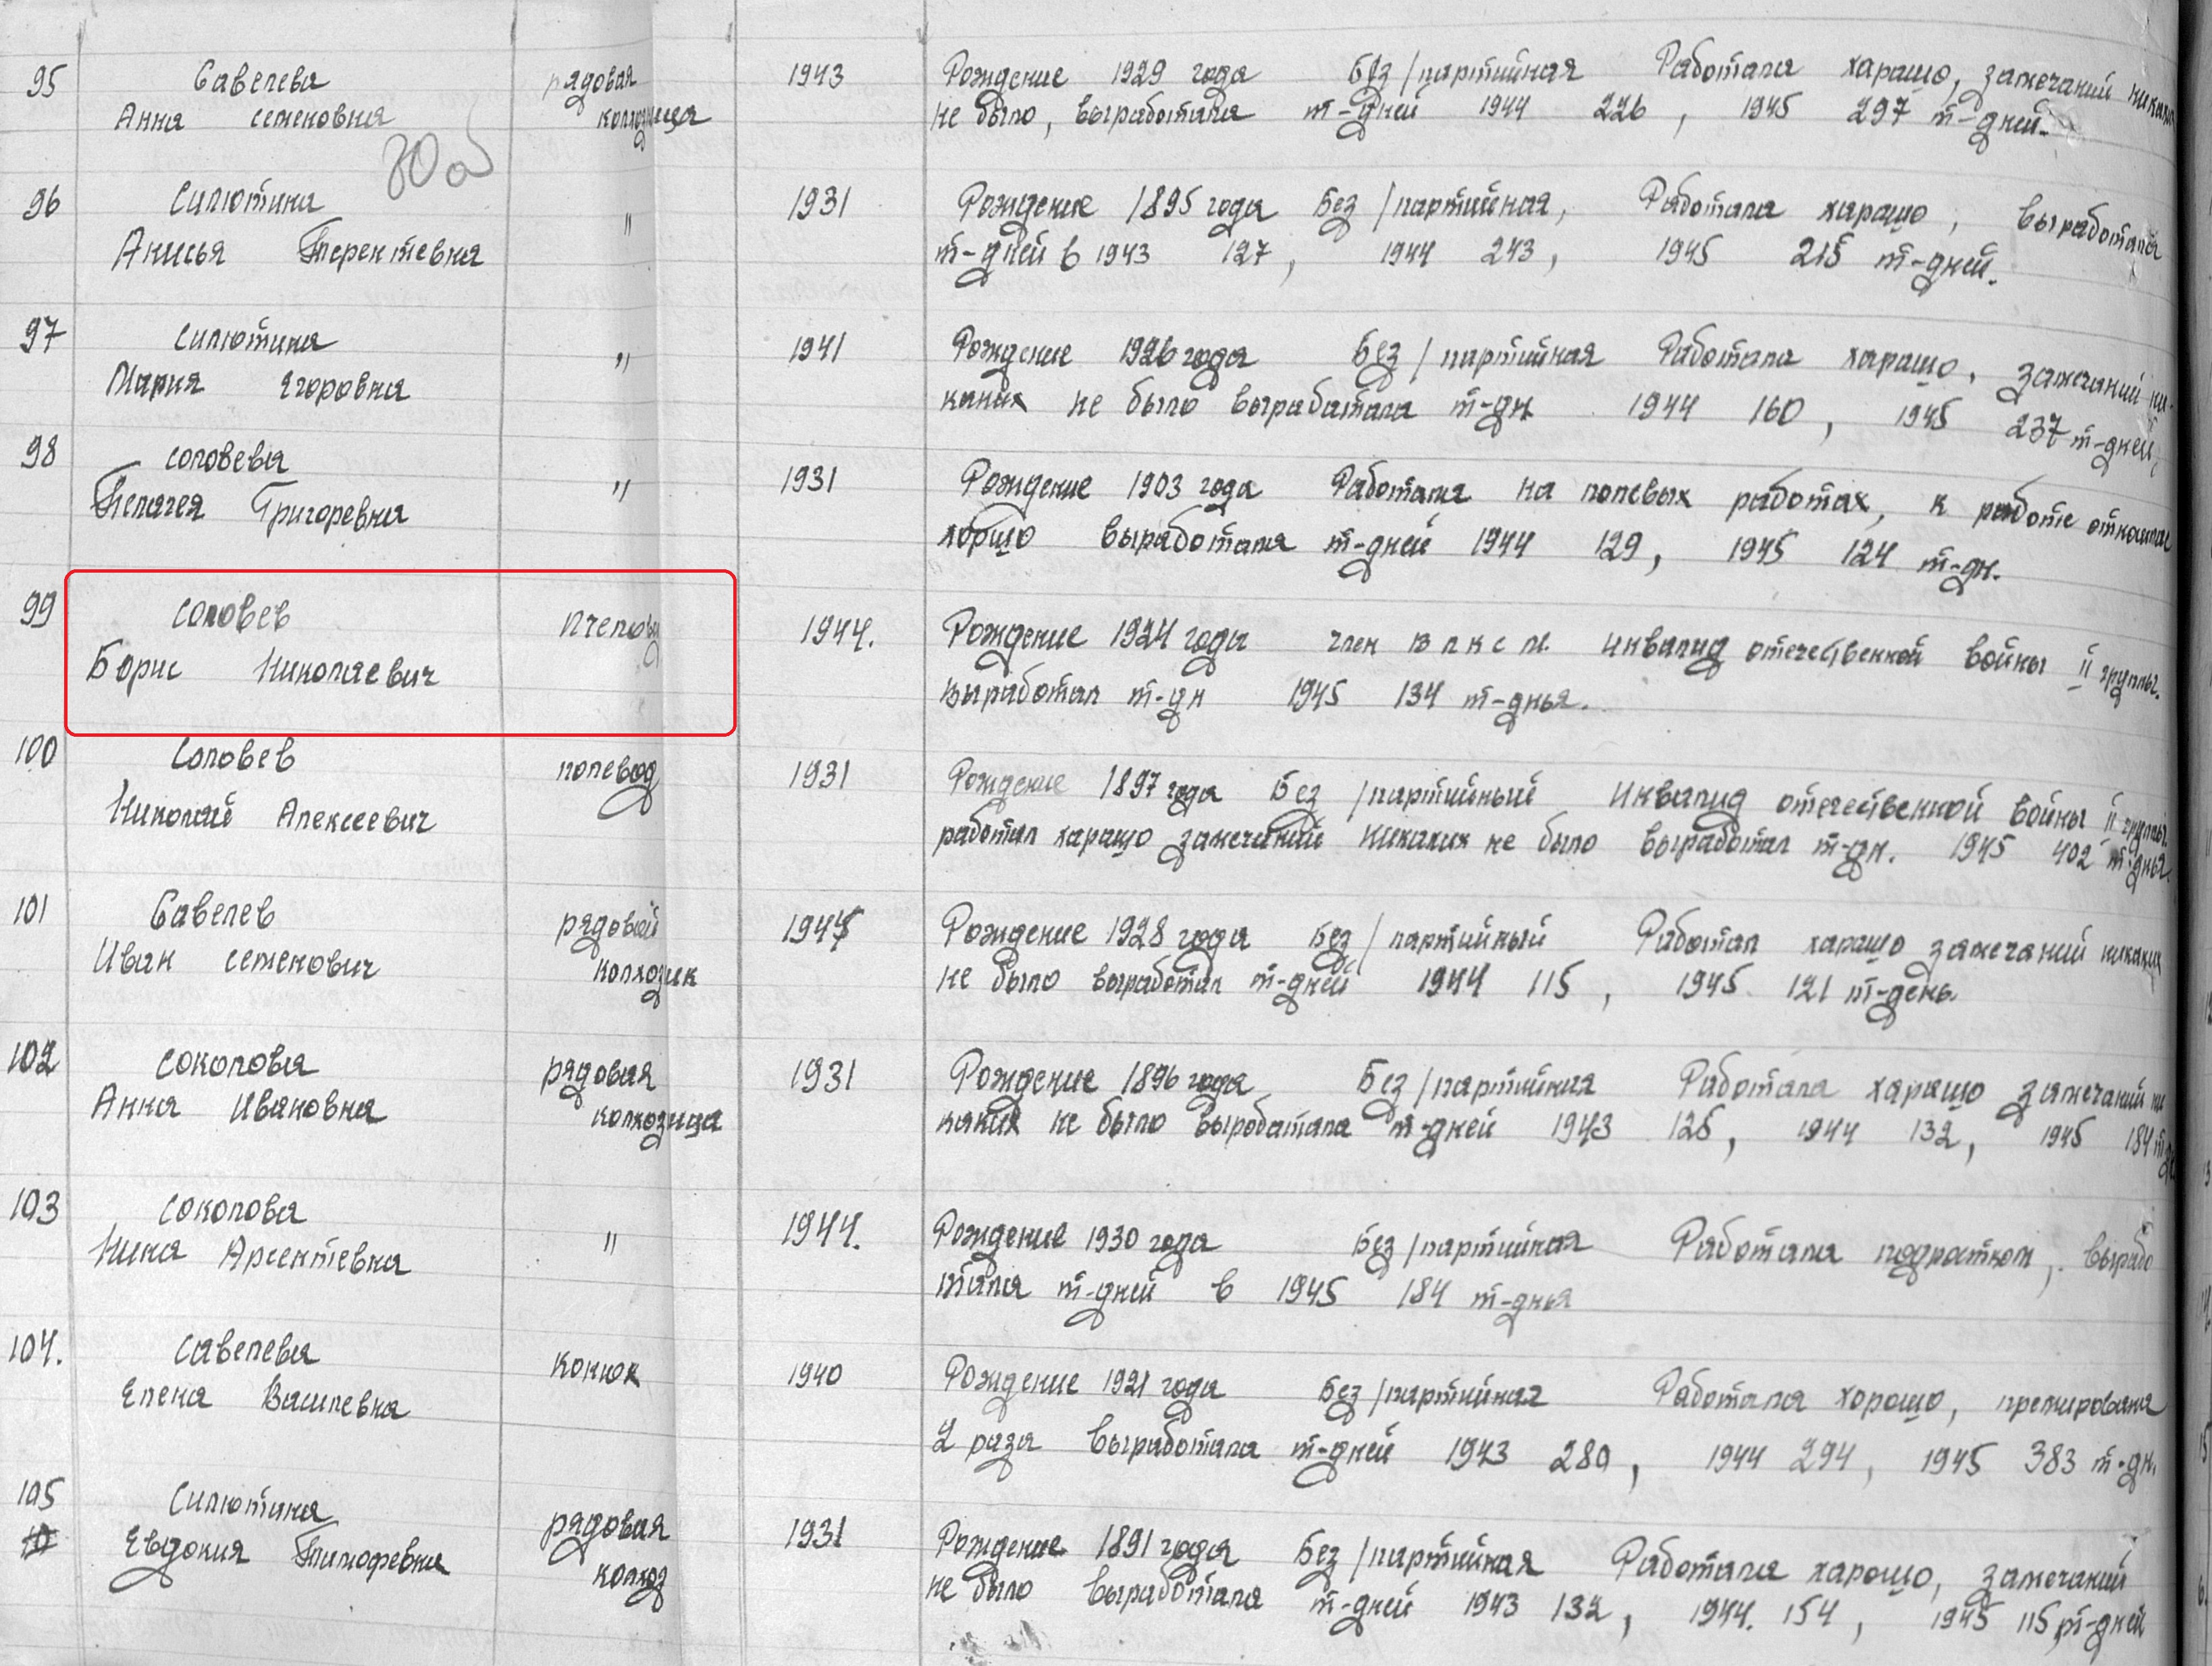 95 Савелева рядовая 1943 Рождение 1929 года Без/партийная Работала харашо, замечаний никаких
Анна семеновна колхозница не было, выработала т-дней 1944 226, 1945 297 т-дней.
80об
96 Силютина " 1931 Рождение 1895 года Без/партийная, Работала харашо, выработала
Анисья Терентевна т-дней в 1943 127, 1944 243, 1945 215 т-дней.
97 Силютина " 1941 Рождение 1926 года Без/партийная Работала харашо, замечаний ни-
Мария Егоровна каких не было вырабатала т-дн 1944 160, 1945 237 т-дней,
98 соловева " 1931 Рождение 1903 года Работала на полевых работах, к работе
Пелагея Григоревна хоршо выработала т-дней 1944 129, 1945 124 т-дн.
99 соловев пчеловд 1944. Рождение 1924 года член в л к с м. инвалид отечественной войны II группы.
Борис Николаевич выработал т-дн 1945 134 т-дня.
100 Соловев полевод 1931 Рождение 1897 года Без/партийный инвалид отечественной войны II группы.
Николай Алексеевич работал харашо замечаний никаких не было выработал т-дн. 1945 402 т-дня.
101 Савелев рядовой 1944 Рождение 1928 года Без/партийный Работал харашо замечаний никаких
Иван семенович колхозник не было выработал т-дней 1944 115, 1945 121 т-день.
102 соколова рядовая 1931 Рождение 1896 года Без/партийная Работала харашо замечаний ни
Анна Ивановна колхозница каких не было выработала т-дней 1943 125, 1944 132, 1945 184 т-дн
103 соколова " 1944. Рождение 1930 года Без/партийная Работала подрастком, вырабо
Нина Арсентевна тала т-дней в 1945 184 т-дня
104. савелева конюх 1940 Рождение 1921 года Без/партийная Работала хорошо, премирована
Елена Василевна 2 раза выработала т-дней 1943 280, 1944 294, 1945 383 т-дн.
105 Силютина рядовая 1931 Рождение 1891 года Без/партийная Работала харошо, замечаний
Евдокия Тимофевна колхоз не было выработала т-дней 1943 132, 1944. 154, 1945 115 т-дней